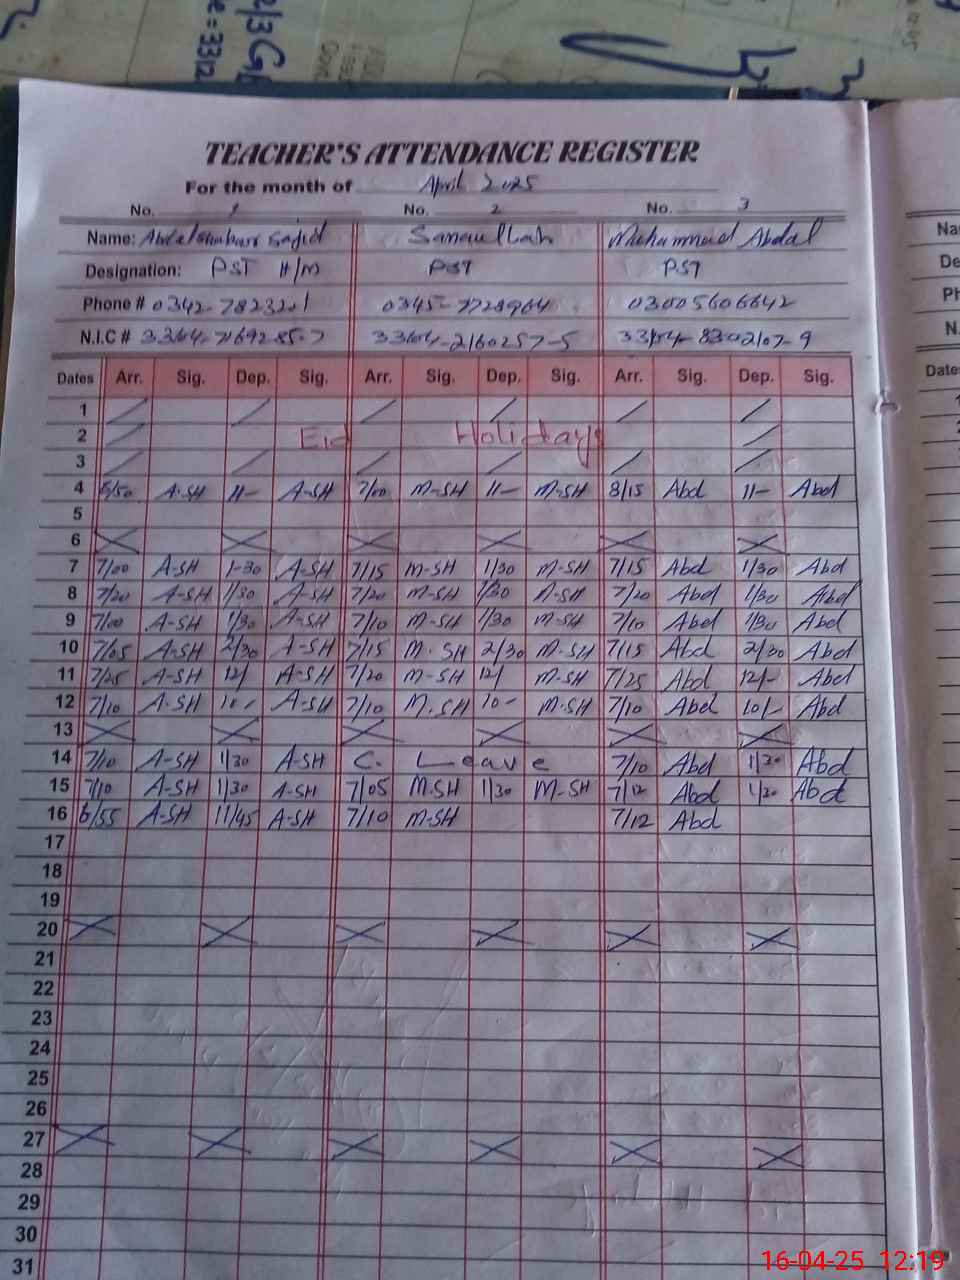 TEACHER'S ATTENDANCE REGISTER
For the month of April 2025
No. 1 No. 2 No. 3
Name: Sajid Sanaullah Muhammad Abdal
Designation: PST H/M PST PST
Phone # 0345-7728964 03005606642
N.I.C #
Dates Arr. Sig. Dep. Sig. Arr. Sig. Dep. Sig. Arr. Sig. Dep. Sig.
1
2 Eid Holidays
3
4 6/50 A-SH 11- A-SH 7/00 M-SH 11- M-SH 8/15 Abd 11- Abd
5
6
7 7/00 A-SH 1-30 A-SH 7/15 M-SH 1/30 M-SH 7/15 Abd 1/30 Abd
8 7/20 A-SH 1/30 A-SH 7/20 M-SH 1/30 M-SH 7/20 Abd 1/30 Abd
9 7/00 A-SH 1/30 A-SH 7/10 M-SH 1/30 M-SH 7/10 Abd 1/30 Abd
10 7/05 A-SH 2/30 A-SH 7/15 M-SH 2/30 M-SH 7/15 Abd 2/30 Abd
11 7/25 A-SH 12/ A-SH 7/20 M-SH 12/ M-SH 7/25 Abd 12/- Abd
12 7/10 A-SH 10- A-SH 7/10 M-SH 10- M-SH 7/10 Abd 10/- Abd
13
14 7/10 A-SH 1/30 A-SH C. Leave 7/10 Abd 1/30 Abd
15 7/10 A-SH 1/30 A-SH 7/05 M-SH 1/30 M-SH 7/12 Abd 1/30 Abd
16 6/55 A-SH 11/45 A-SH 7/10 M-SH 7/12 Abd
17
18
19
20
21
22
23
24
25
26
27
28
29
30
31
16-04-25 12:19